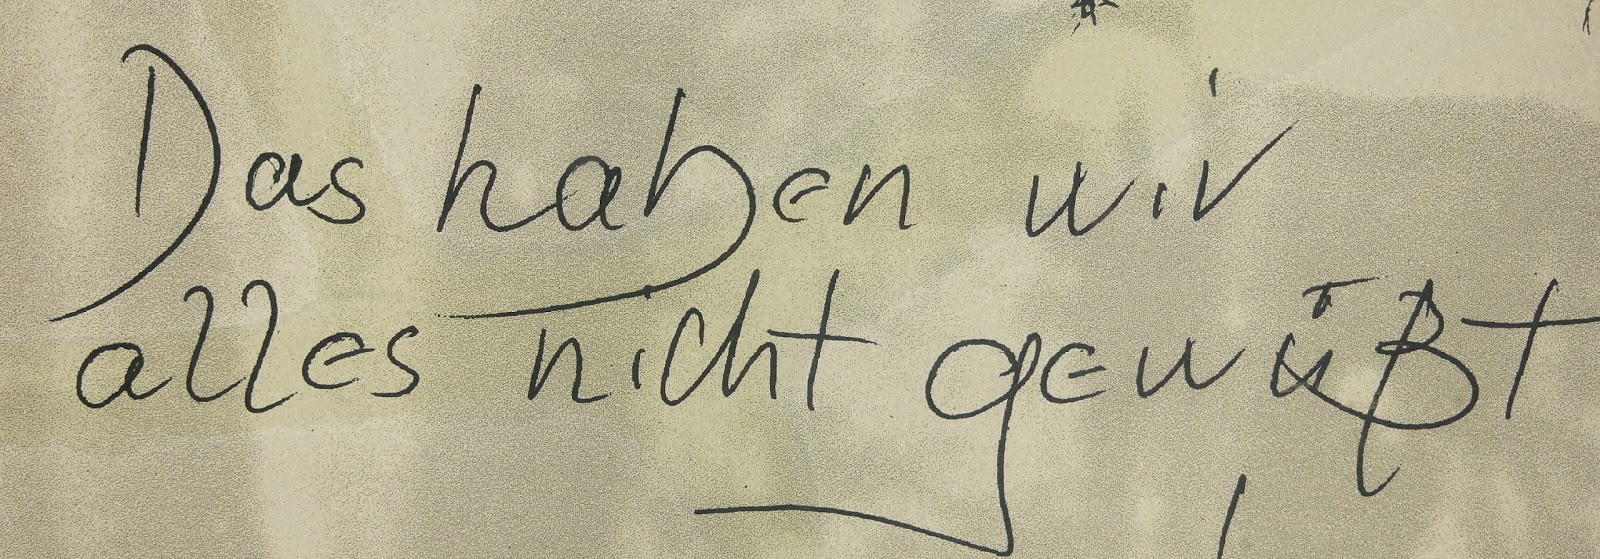 Das haben wir
alles nicht gewüßt